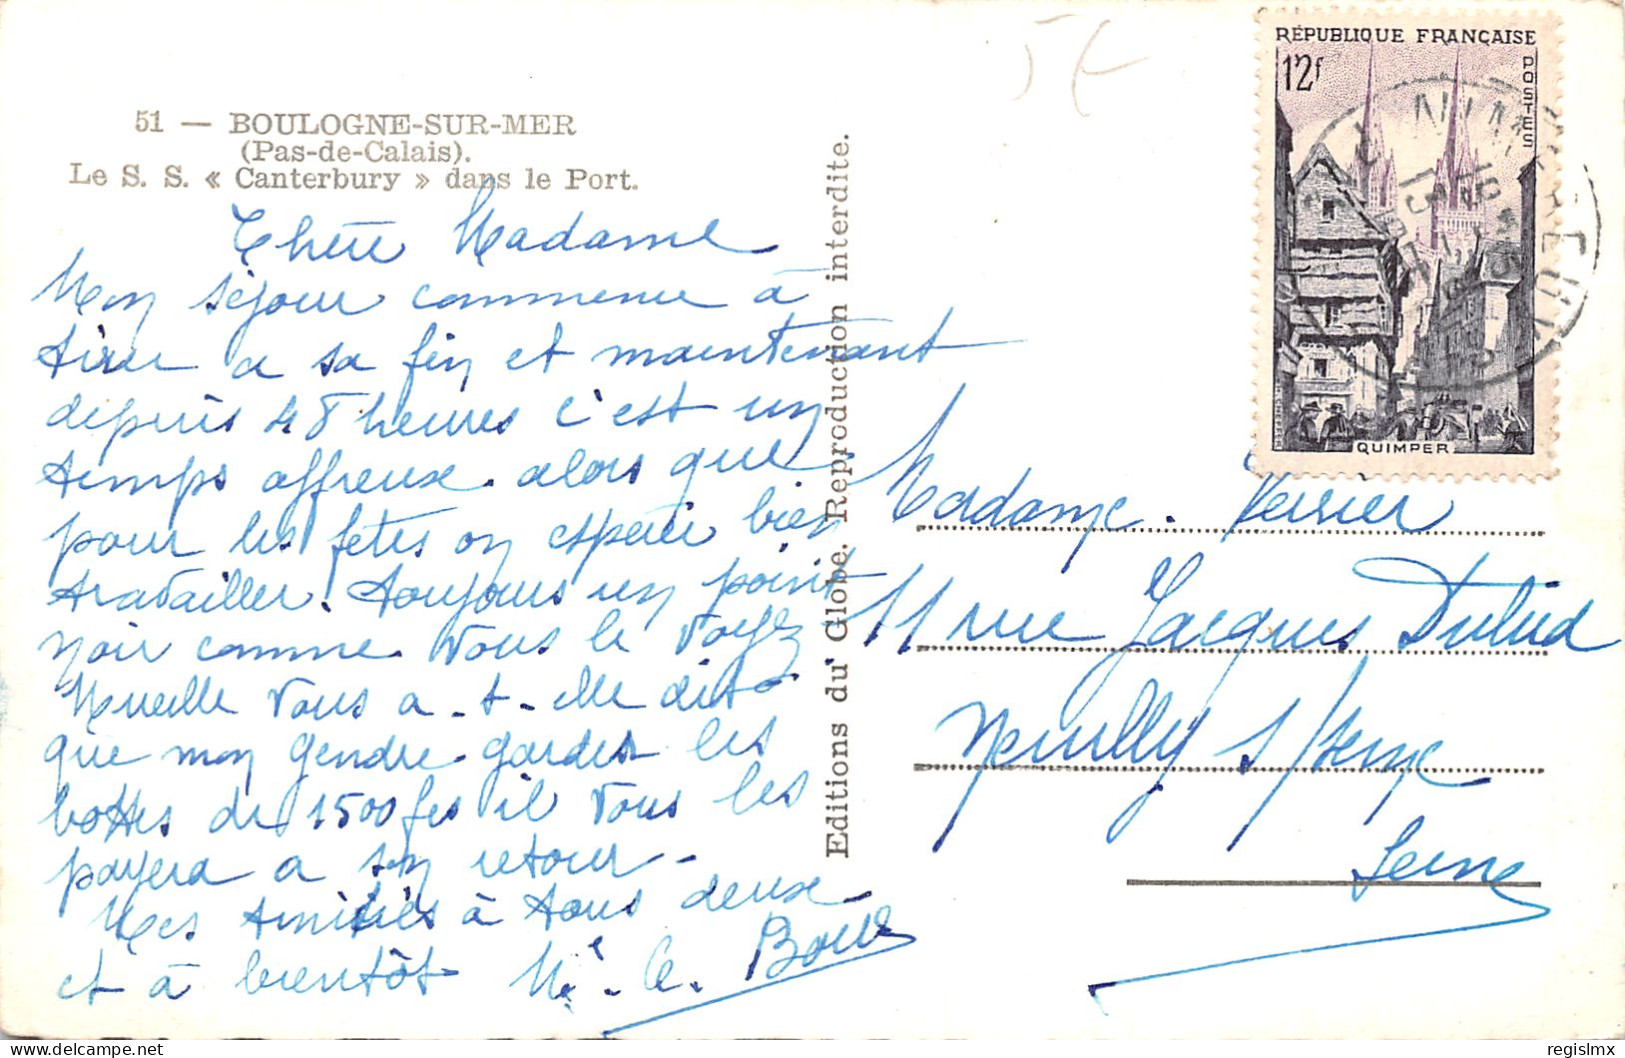 51 — BOULOGNE-SUR-MER
(Pas-de-Calais).
Le S. S. « Canterbury » dans le Port.
Chère Madame
Mon séjour commence à
tirer a sa fin et maintenant
depuis 48 heures c'est un
temps affreux. alors que
pour les fêtes on espérée bien
travailler! toujours un point
noir comme vous le voyez
vous a-t-elle dit
que mon gendre garder les
bottes de 1500 frs il vous les
payera a son retour -
Mes Amitiés à tous deux
et à bientôt
Editions du Globe. Reproduction interdite.
5€
RÉPUBLIQUE FRANÇAISE
12f
POSTES
QUIMPER
Madame.
11 rue Jacques Dulud
Neuilly s/ Seine
Seine
regislmx
https://www.delcampe.net